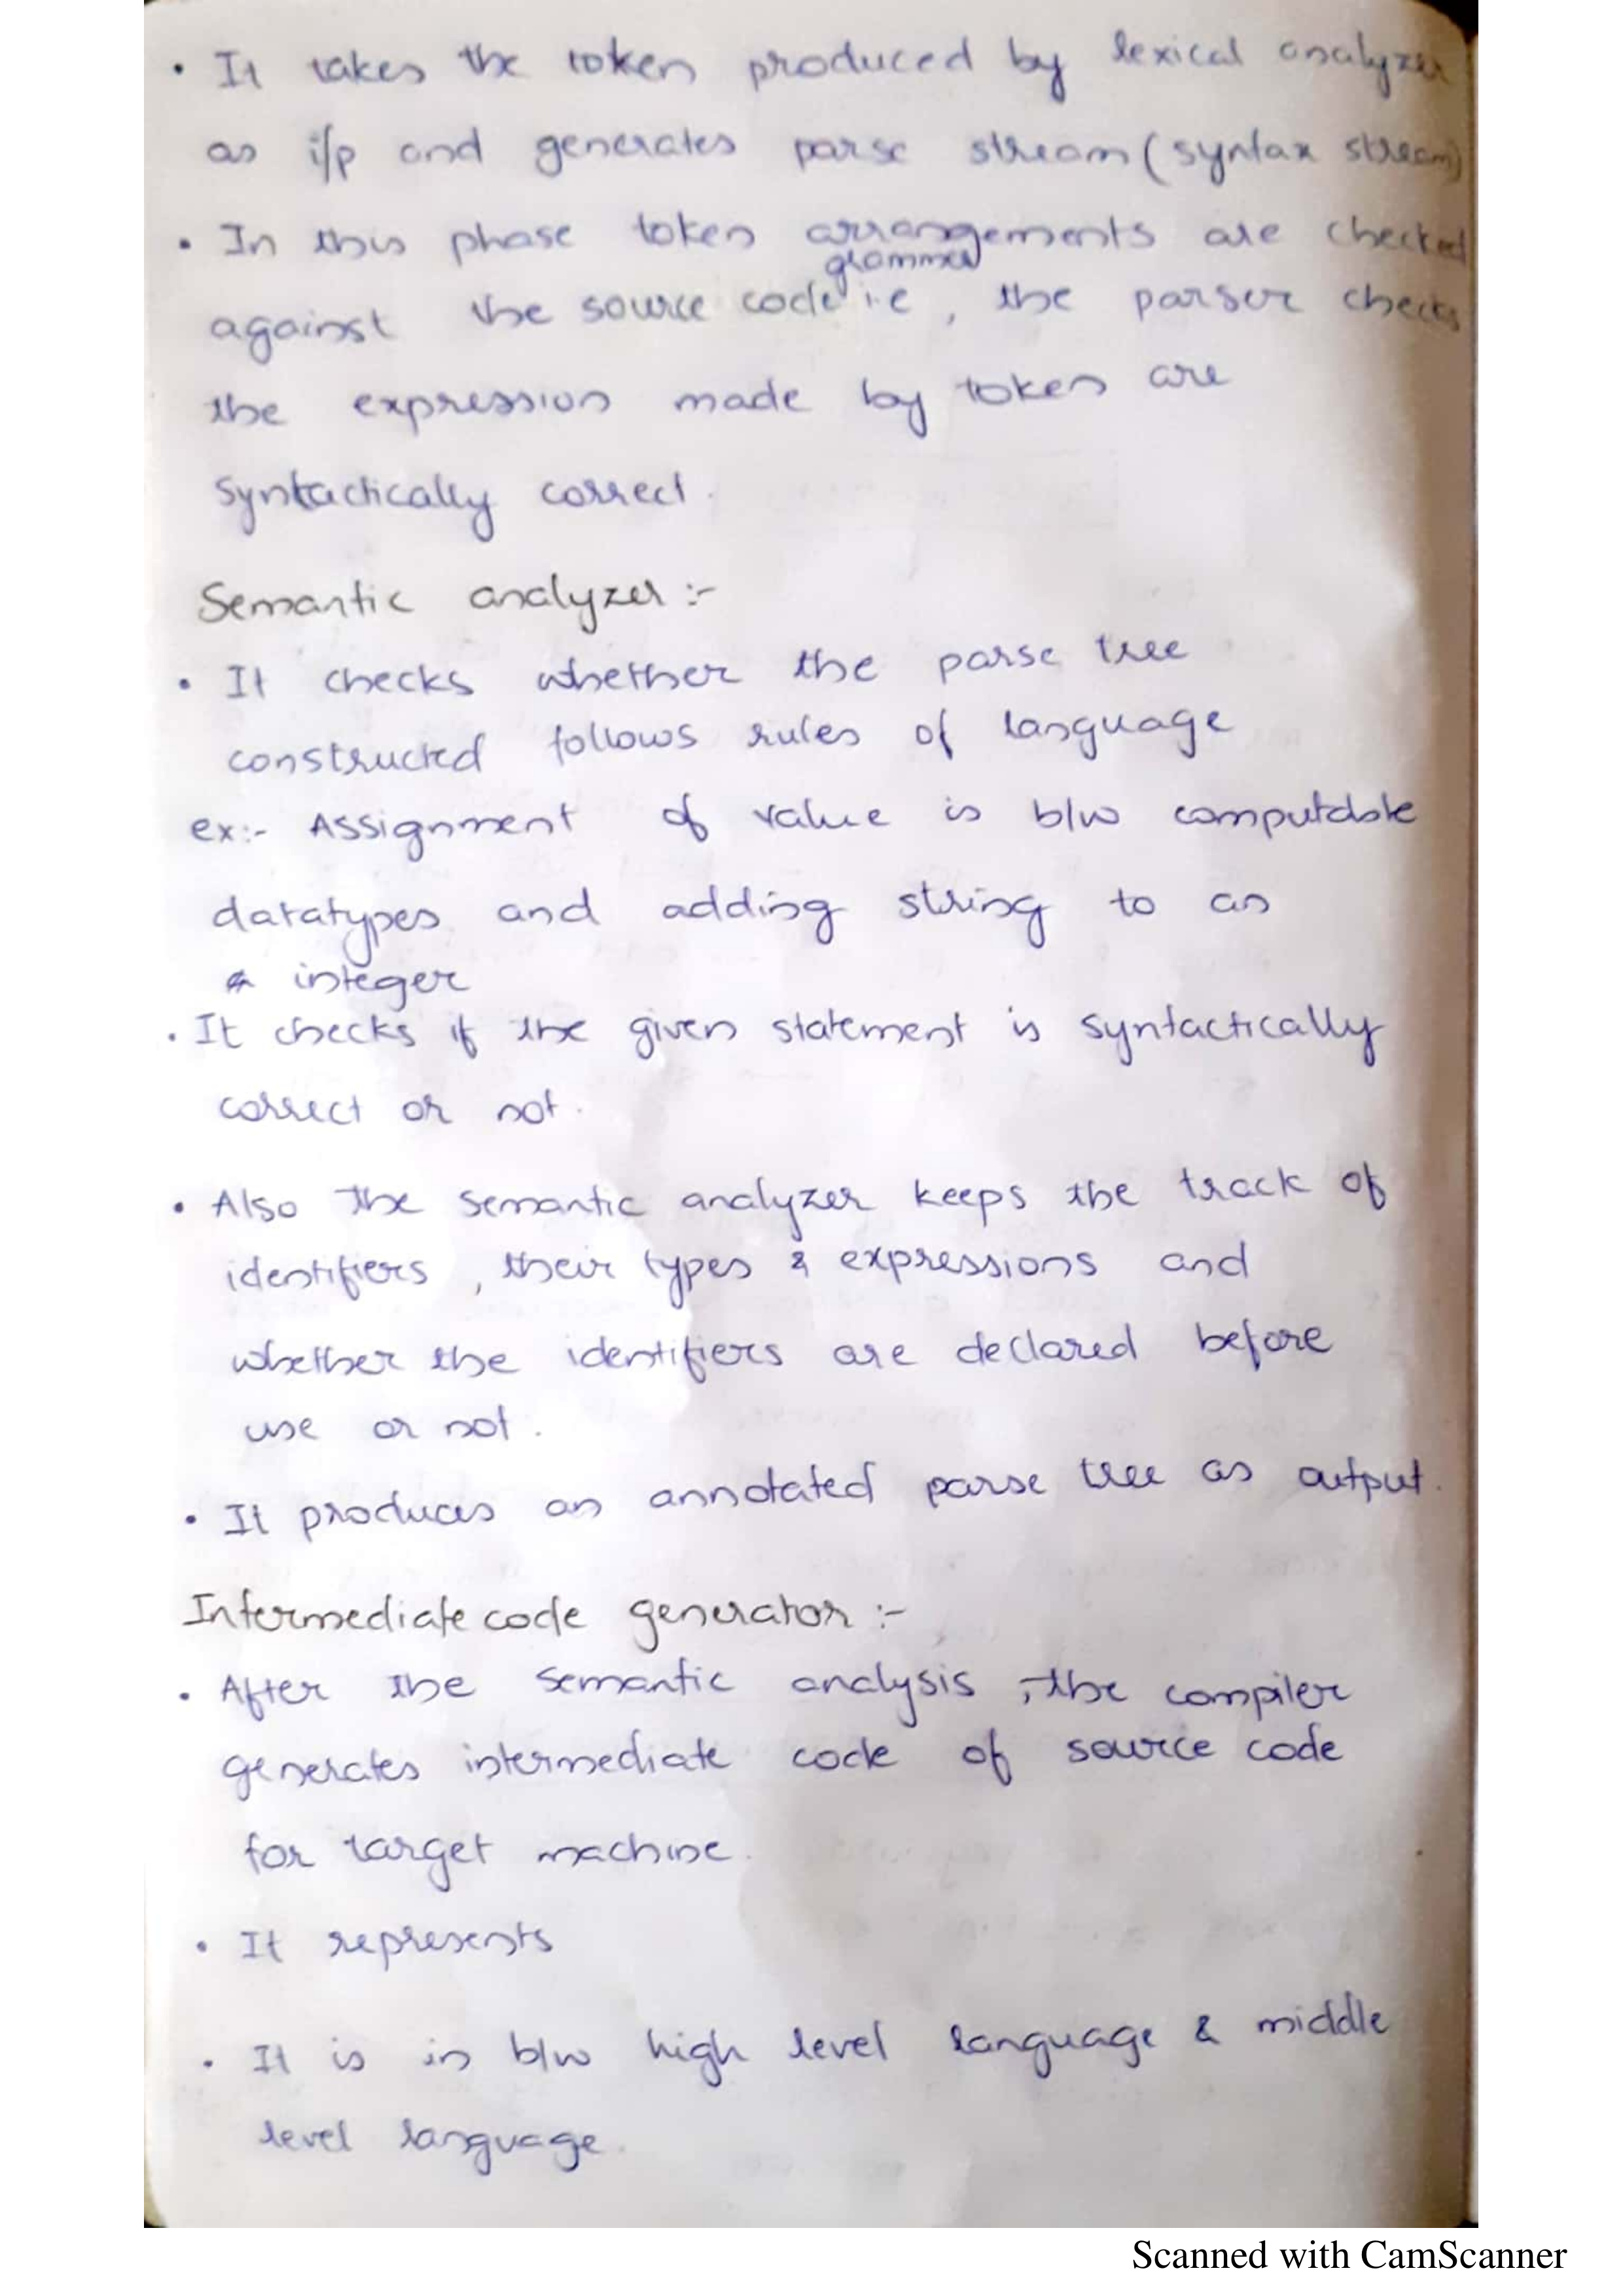 • It takes the token produced by lexical analyzer
as i/p and generates parse stream (syntax stream)
• In this phase token arrangements are checked
grammer
against the source code i.e , the parser checks
the expression made by token are
syntactically correct.
Semantic analyzer :-
• It checks whether the parse tree
constructed follows rules of language
ex:- Assignment of value is b/w computable
datatypes and adding string to an
integer
• It checks if the given statement is syntactically
correct or not.
• Also the semantic analyzer keeps the track of
identifiers , their types & expressions and
whether the identifiers are declared before
use or not.
• It produces an annotated parse tree as output.
Intermediate code generator :-
• After the semantic analysis , the compiler
generates intermediate code of source code
for target machine.
• It represents
• It is in b/w high level language & middle
level language.
Scanned with CamScanner